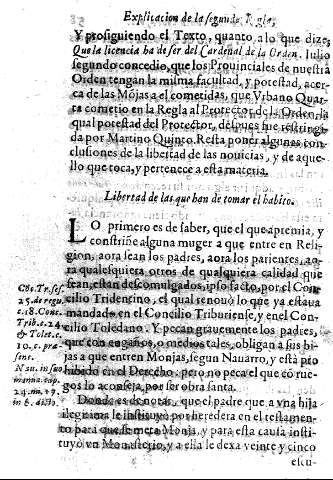 Explicacion de la segunda Regla,
Y prosiguiendo el Texto, quanto a lo que dize,
Que la licencia ha de ser del Cardenal de la Orden. Iulio
segundo concedio, que los Prouinciales de nuestra
Orden tengan la misma facultad, y potestad, acer-
ca de las Mõjas a el cometidas, que Vrbano Quar-
to cometio en la Regla al Protector de la Orden, la
qual potestad del Protector, despues fue restringi-
da por Martino Quinto. Resta poner algunas con-
clusiones de la libertad de las nouicias, y de aque-
llo que toca, y pertenece a esta materia.
Libertad de las que han de tomar el habito.
LO primero es de saber, que el que apremia, y
constriñe alguna muger a que entre en Reli-
gion, aora sean los padres, aora los parientes, ao-
ra qualesquiera otros de qualquiera calidad que
sean, estan descomulgados, ipso facto, por el Con-
cilio Tridentino, el qual renouò lo que ya estaua
mandado en el Concilio Triburiense, y en el Con-
cilio Toledano. Y pecan grauemente los padres,
que con engaños, o medios tales, obligan a sus hi-
jas a que entren Monjas, segun Nauarro, y està pro
hibido en el Derecho: pero no peca el que cõ rue-
gos lo aconseja, por ser obra santa.
Donde es de notar, que el padre que a vna hija
ilegitima le instituyò por heredera en el testamen-
to para que se meta Monja, y para esta causa insti-
tuyò vn Monasterio, y a ella le dexa veinte y cinco
escu-
Cõc. Tr. ses.
25. de regu.
c. 18. Conc.
Trib. c. 24
& Tolet.
10. c. præ
sent.
Nau. in suo
manna. cap.
24. nu. 19.